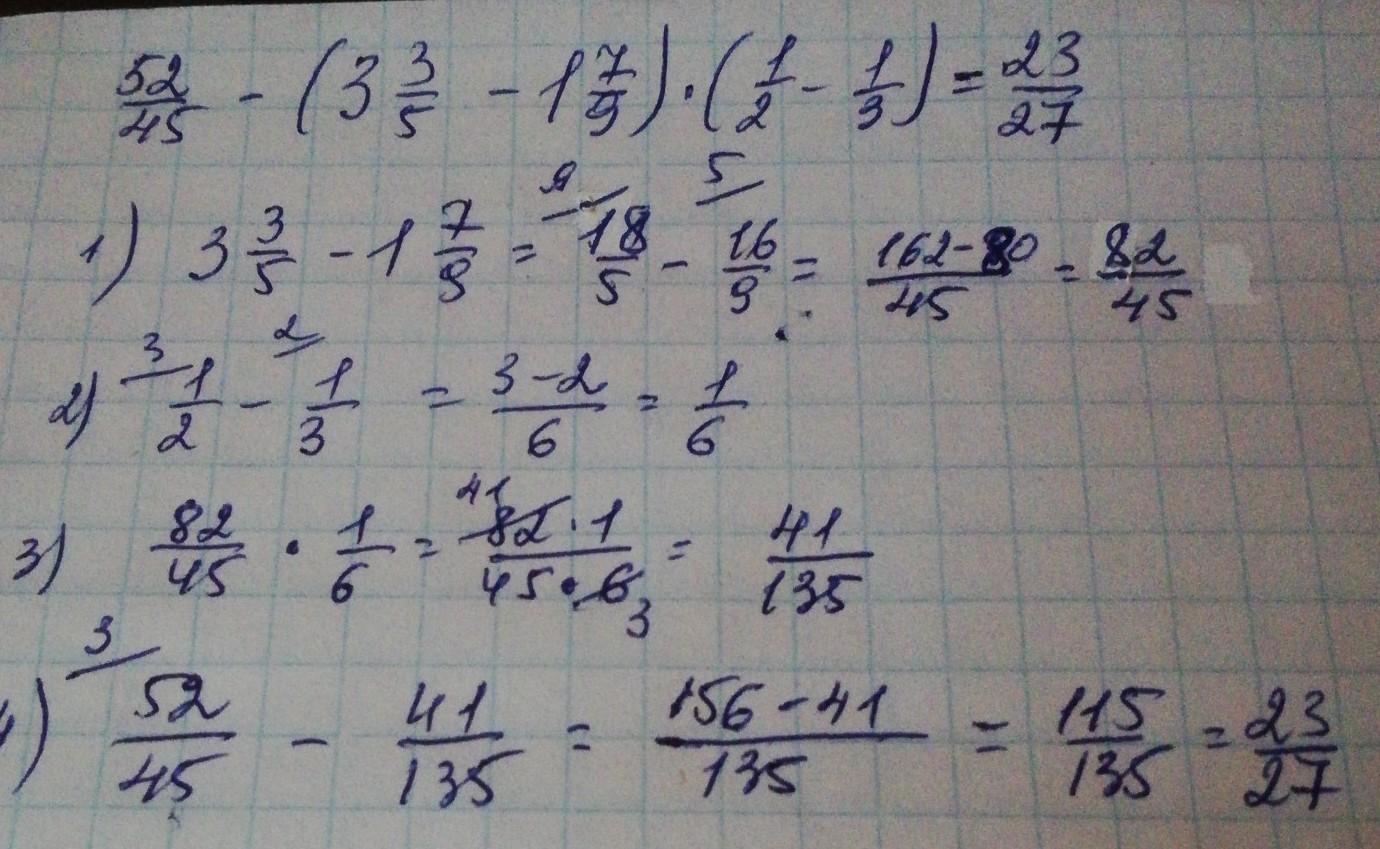 52/45 - (3 3/5 - 1 7/9) · (1/2 - 1/3) = 23/27
1) 3 3/5 - 1 7/9 = 18/5 - 16/9 = 162-80/45 = 82/45
2) 1/2 - 1/3 = 3-2/6 = 1/6
3) 82/45 · 1/6 = 82·1/45·6 = 41/135
4) 52/45 - 41/135 = 156-41/135 = 115/135 = 23/27